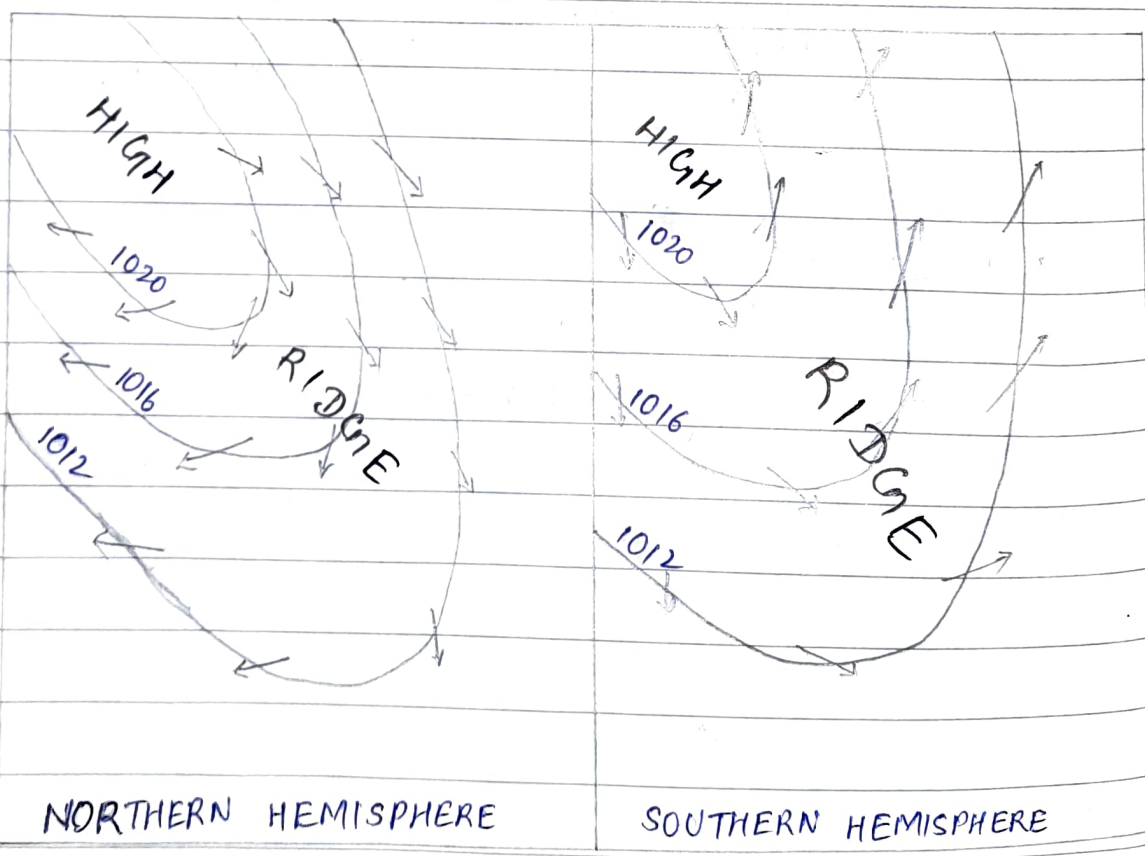 HIGH
1020
1016
1012
RIDGE
NORTHERN HEMISPHERE
HIGH
1020
1016
1012
RIDGE
SOUTHERN HEMISPHERE